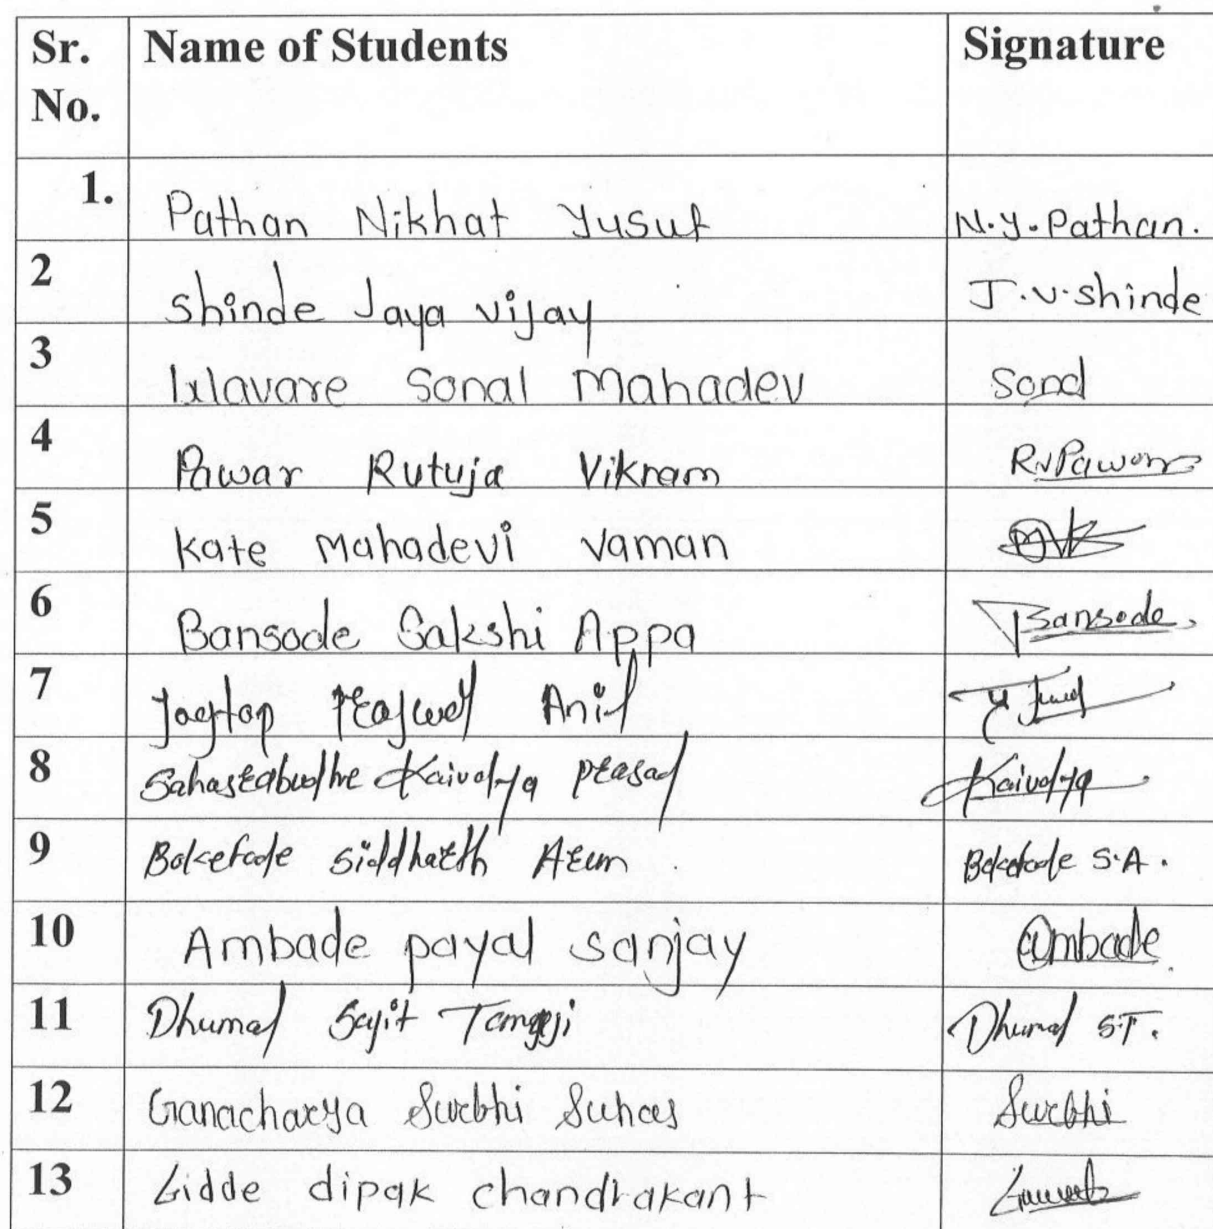 Sr. No. Name of Students Signature
1. Pathan Nikhat Yusuf N.y.Pathan.
2 Shinde Jaya vijay J.v.shinde
3 Wavare Sonal Mahadev Sonal
4 Pawar Rutuja Vikram R.V.Pawar
5 Kate Mahadevi Vaman
6 Bansode Sakshi Appa Bansode.
7 Jagtap Prajwal Anil
8 Sahasrabudhe Kaivalya Prasad Kaivalya
9 Bokefode Siddharth Arun Bokefode S.A.
10 Ambade payal sanjay Ambade
11 Dhumal Sujit Tanaji Dhumal S.T.
12 Ganacharya Surbhi Suhas Surbhi
13 Gidde dipak chandrakant